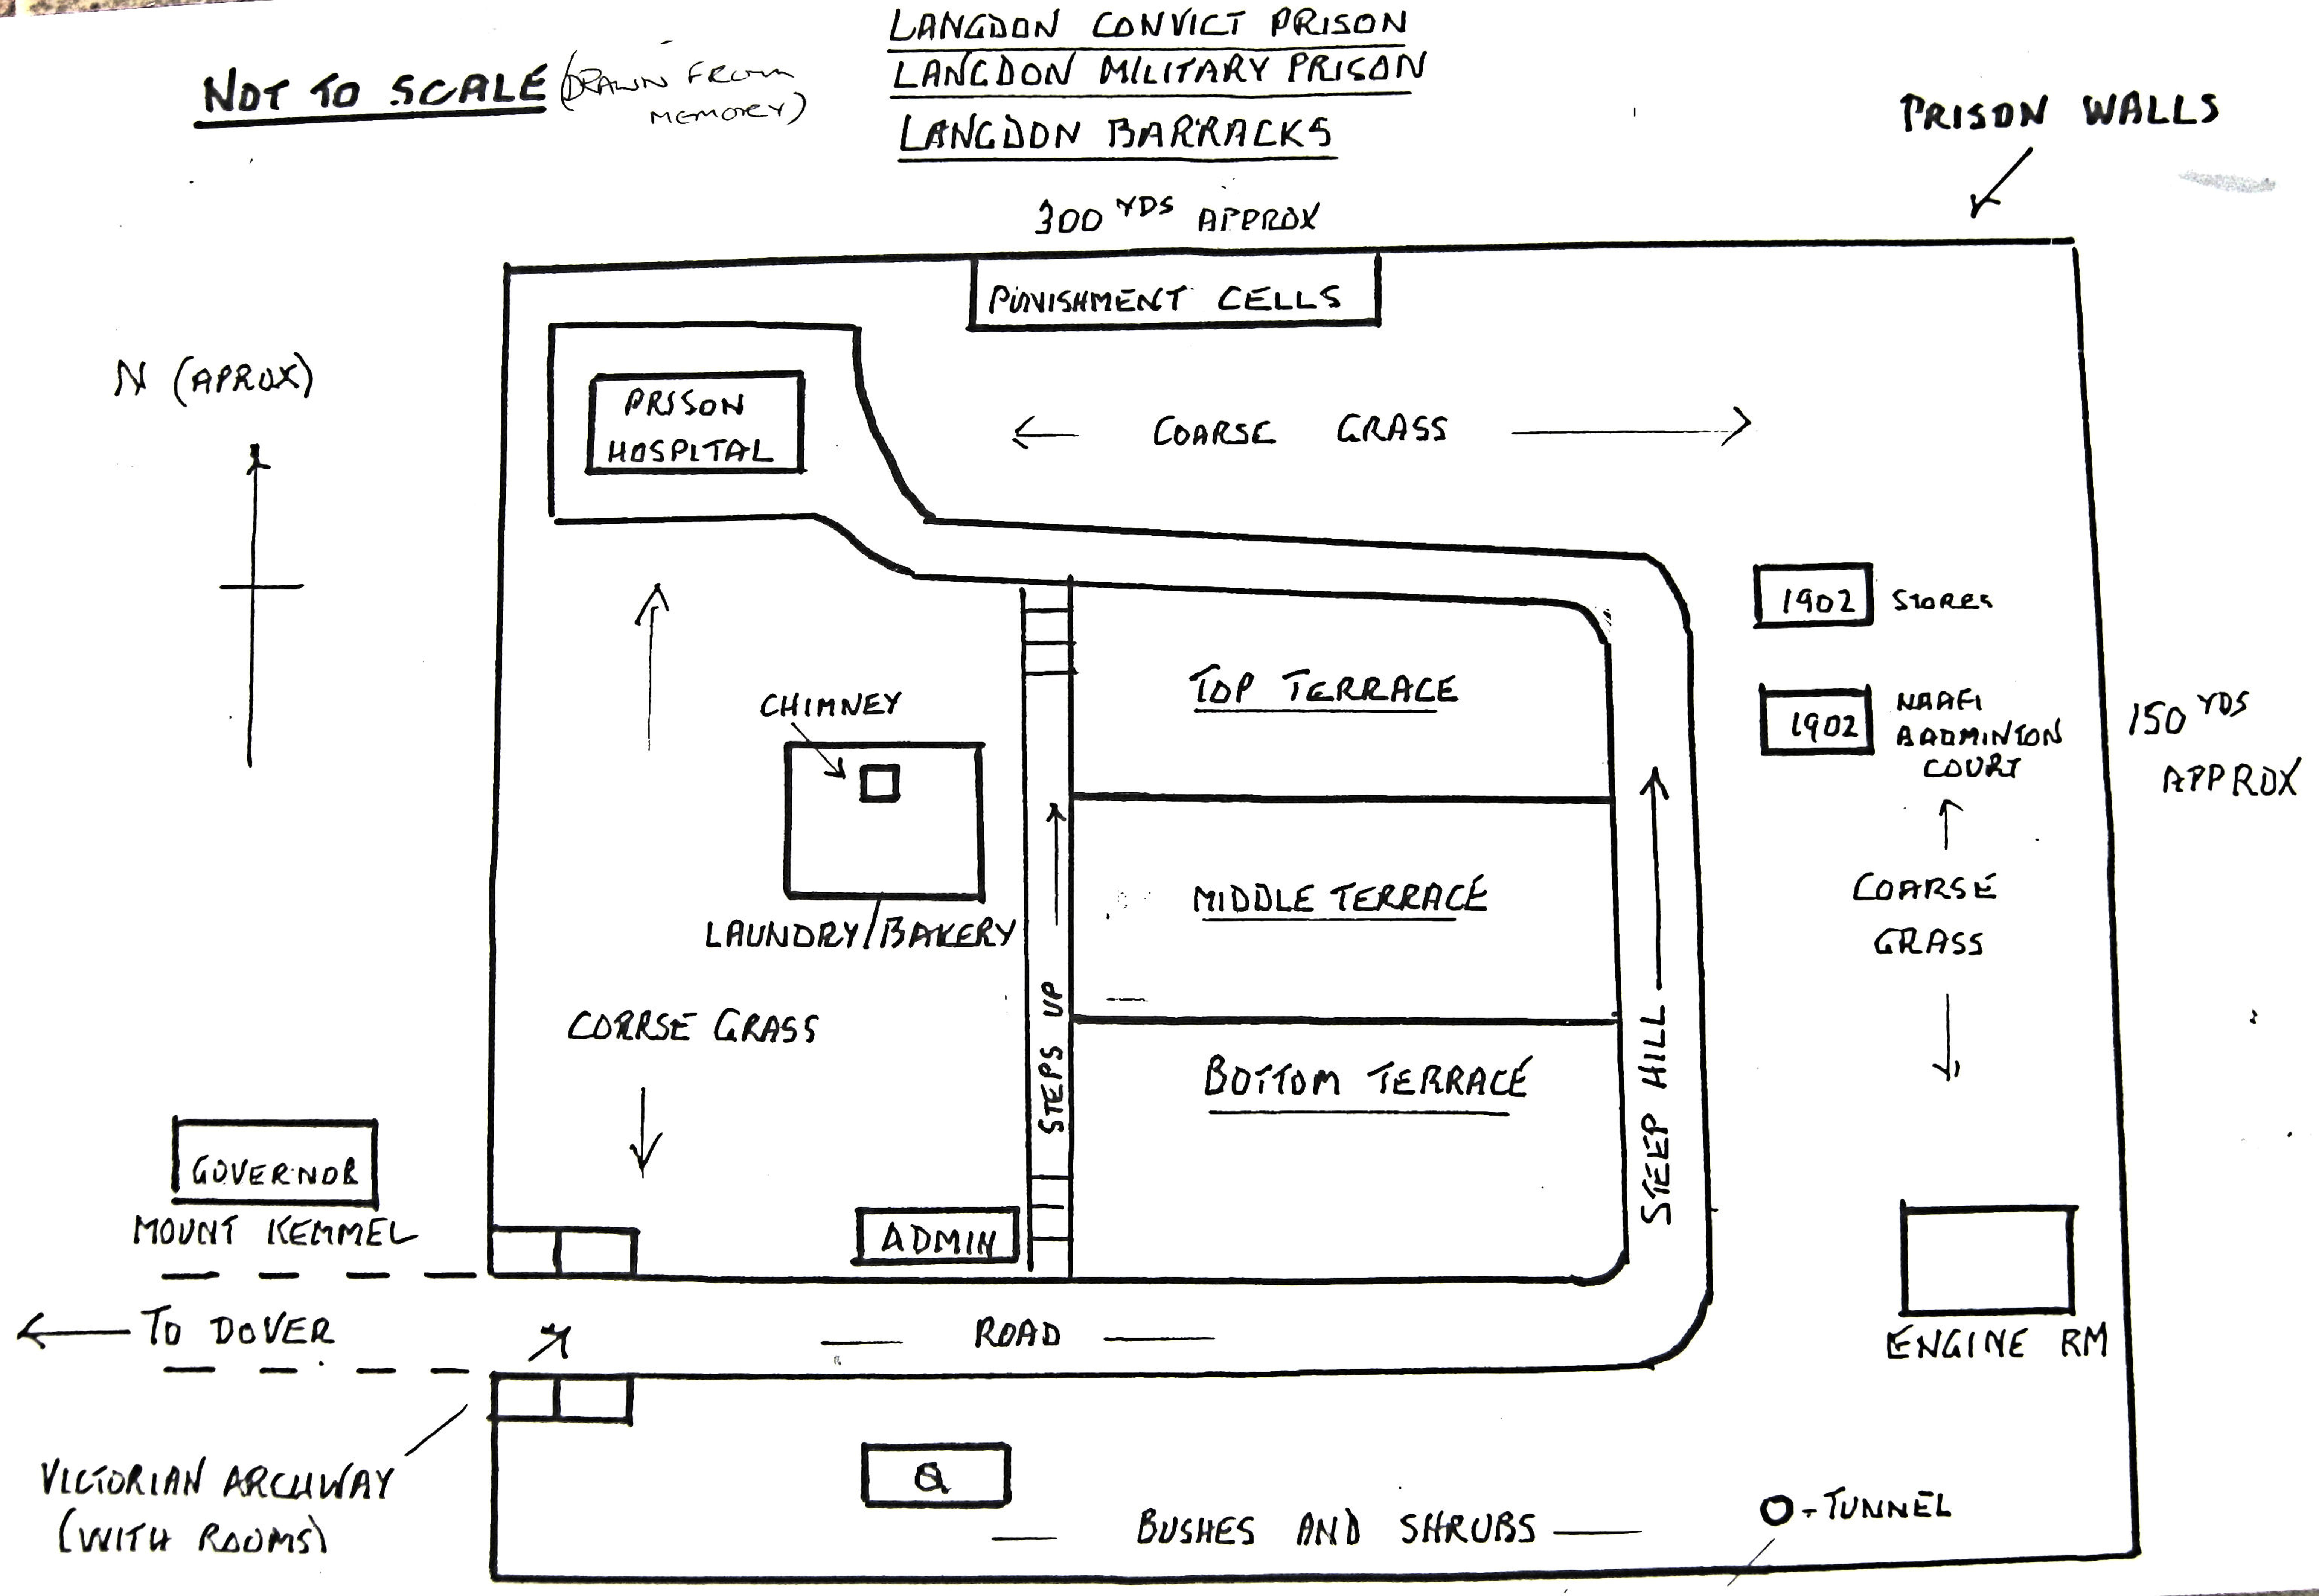 LANGDON CONVICT PRISON
LANGDON MILITARY PRISON
LANGDON BARRACKS
NOT TO SCALE (DRAWN FROM
MEMORY)
PRISON WALLS
300 YDS APPROX
PUNISHMENT CELLS
N (APROX)
PRISON
HOSPITAL
COARSE GRASS
1902 STORES
CHIMNEY
TOP TERRACE
1902 NAAFI
BADMINTON
COURT
150 YDS
APPROX
LAUNDRY/BAKERY
MIDDLE TERRACE
COARSE
GRASS
CORRSE GRASS
STEPS UP
BOTTOM TERRACE
STEEP HILL
GOVERNOR
MOUNT KEMMEL
ADMIN
TO DOVER
ROAD
ENGINE RM
VICTORIAN ARCHWAY
(WITH ROOMS)
Q
BUSHES AND SHRUBS
O-TUNNEL